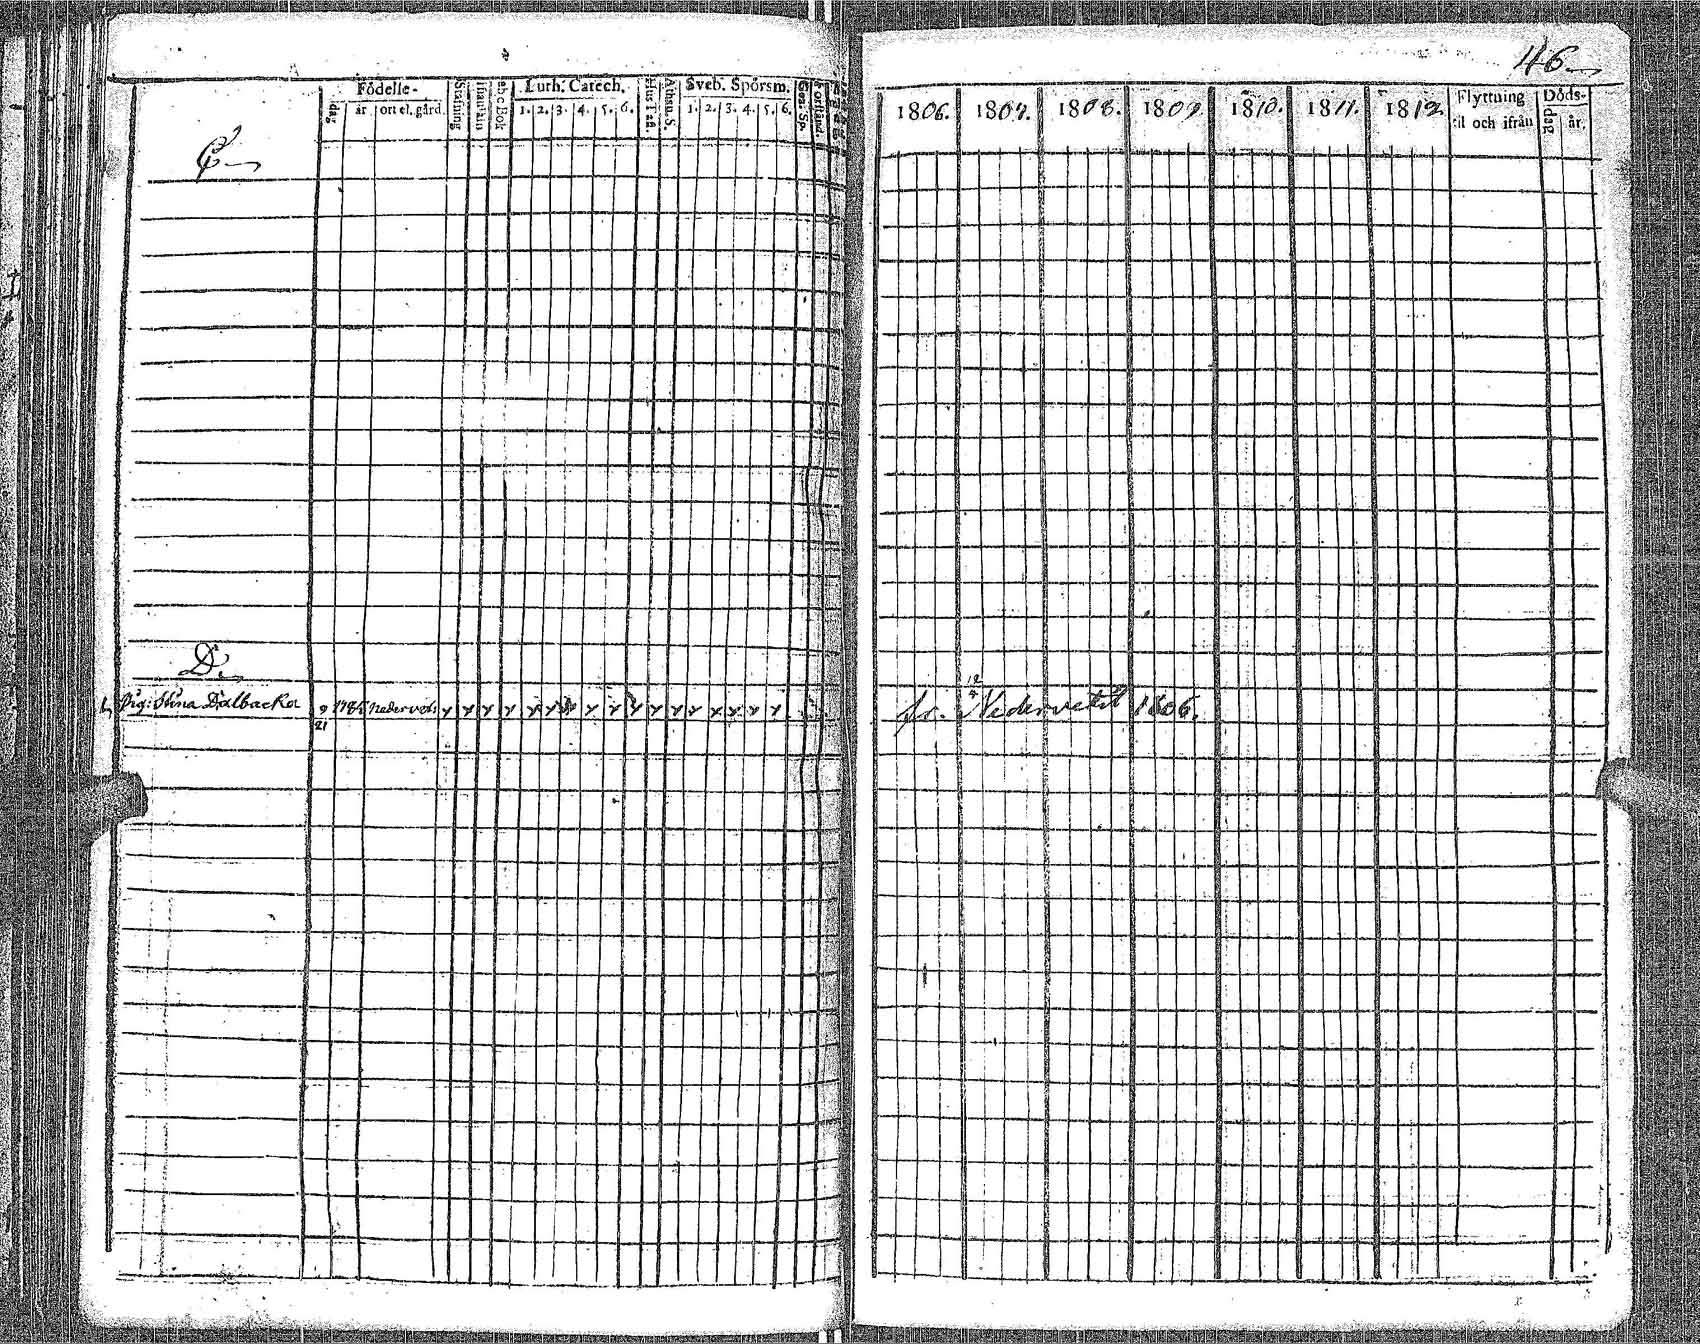 46
Födelse-
dag
år
ort el. gård.
Stafning
innantil
abc Bok
Luth. Catech.
1. 2. 3. 4. 5. 6.
Hus Tafl.
Athan. S.
Sveb. Spörsm.
1. 2. 3. 4. 5. 6.
Förstånd.
1806. 1807. 1808. 1809 1810. 1811. 1812
Flyttning
til och ifrån
Döds-
dag
år.
C
D.
Pig: Stina Dalbacka 9/21 1784 Nedervetil x x x x x x x x x x x x x x x x x x fr. Nedervetil 1806.